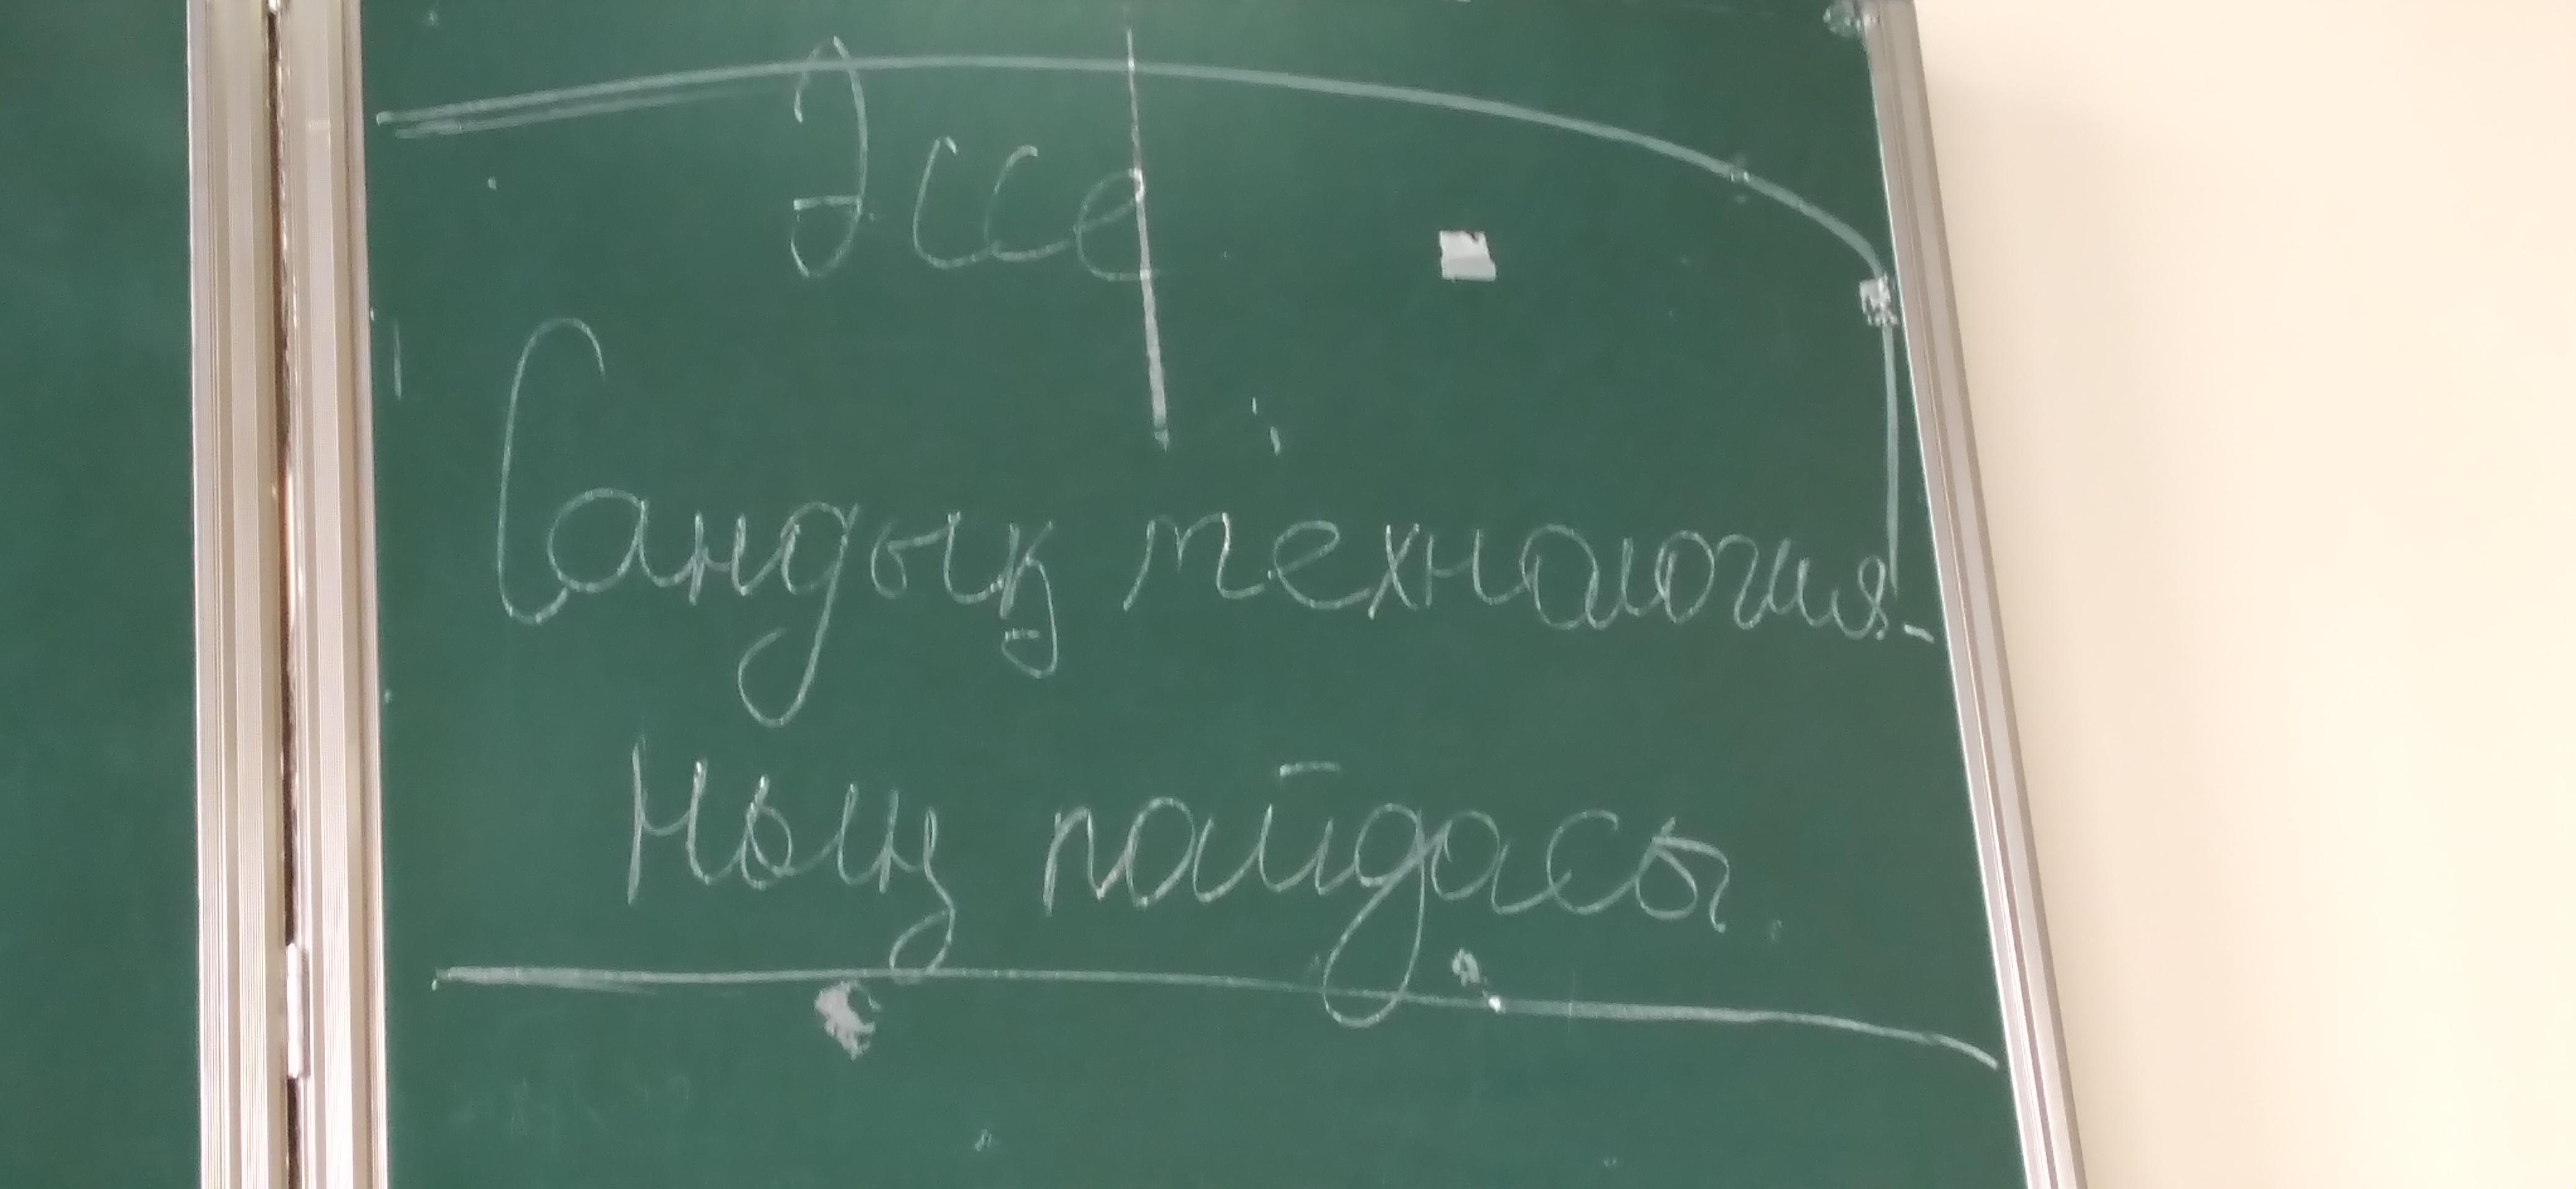 Эссе
Сандық технология-
ның пайдасы.